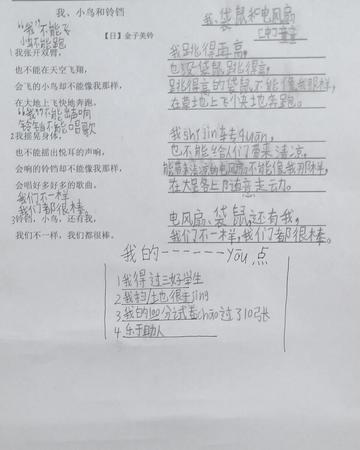 我、小鸟和铃铛
【日】金子美铃
"我"不能飞
小鸟不能跑
1我张开双臂，
也不能在天空飞翔，
会飞的小鸟却不能像我那样，
在大地上飞快地奔跑。
"我"不能出声响
铃铛不能唱歌
2我摇晃身体，
也不能摇出悦耳的声响，
会响的铃铛却不能像我那样，
会唱好多好多的歌曲。
我们不一样
我们都很棒
3铃铛，小鸟，还有我，
我们不一样，我们都很棒。
我、袋鼠和电风扇
我跳得再高，
也没袋鼠跳得高，
跳得高的袋鼠却不能像我那样，
在草地上飞快地奔跑。
我shǐ jìn转quān，
也不能给人们带来清凉，
能带来清凉的电风扇不能像我那样，
在大屋各上随意走动。
电风扇、袋鼠还有我，
我们不一样，我们都很棒。
我的------yōu点
1我得过三好学生
2我扫土也很jìng
3我的100分试卷chāo过了10张
4乐于助人